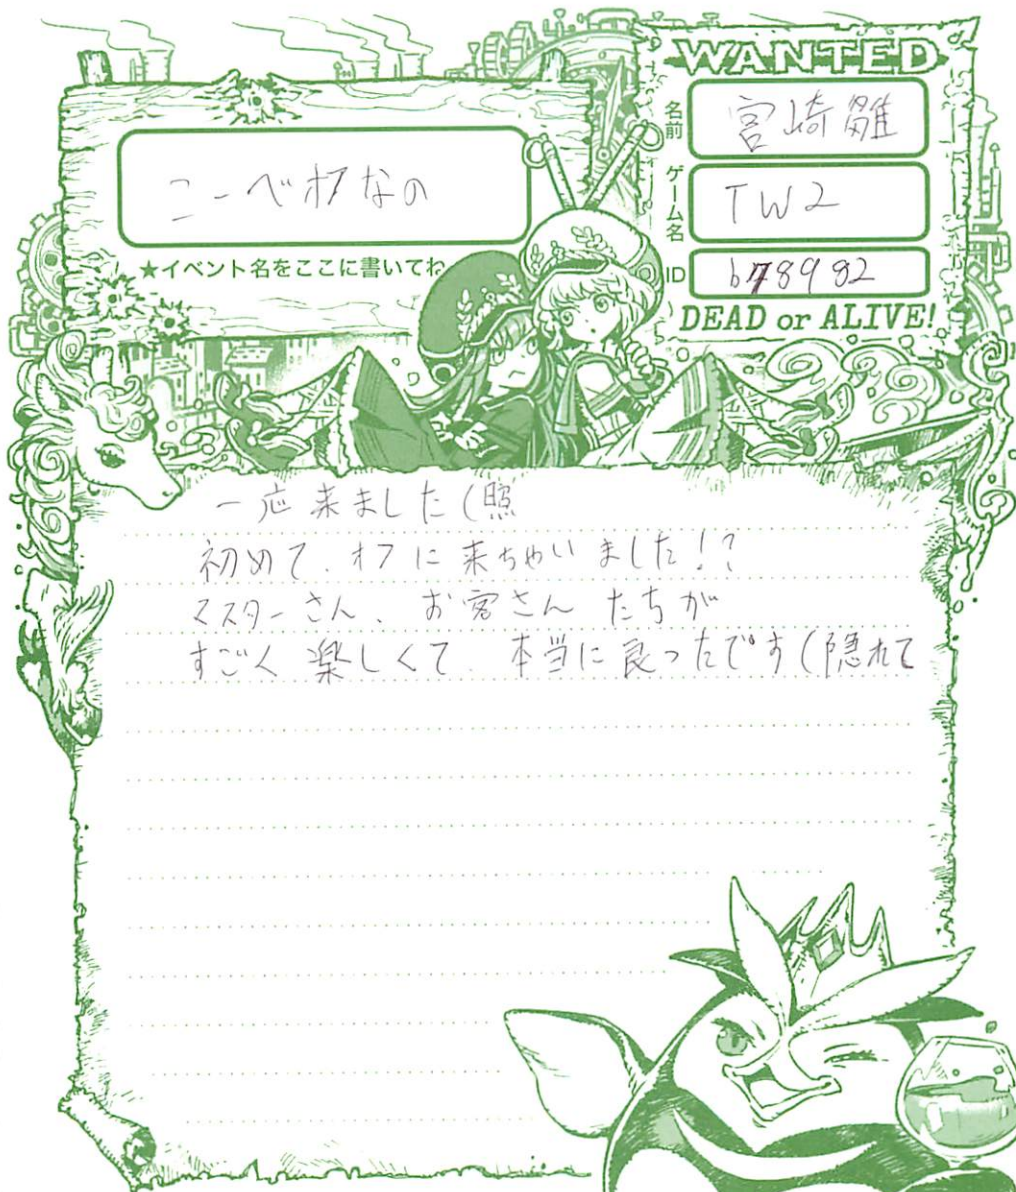 WANTED
名前
宮崎雛
ゲーム名
TW2
ID
b78982
DEAD or ALIVE!
こーべオフなの
★イベント名をここに書いてね
一応来ました(照
初めて、オフに来ちゃいました!?
マスターさん、お客さんたちが
すごく楽しくて、本当に良ったです(隠れて